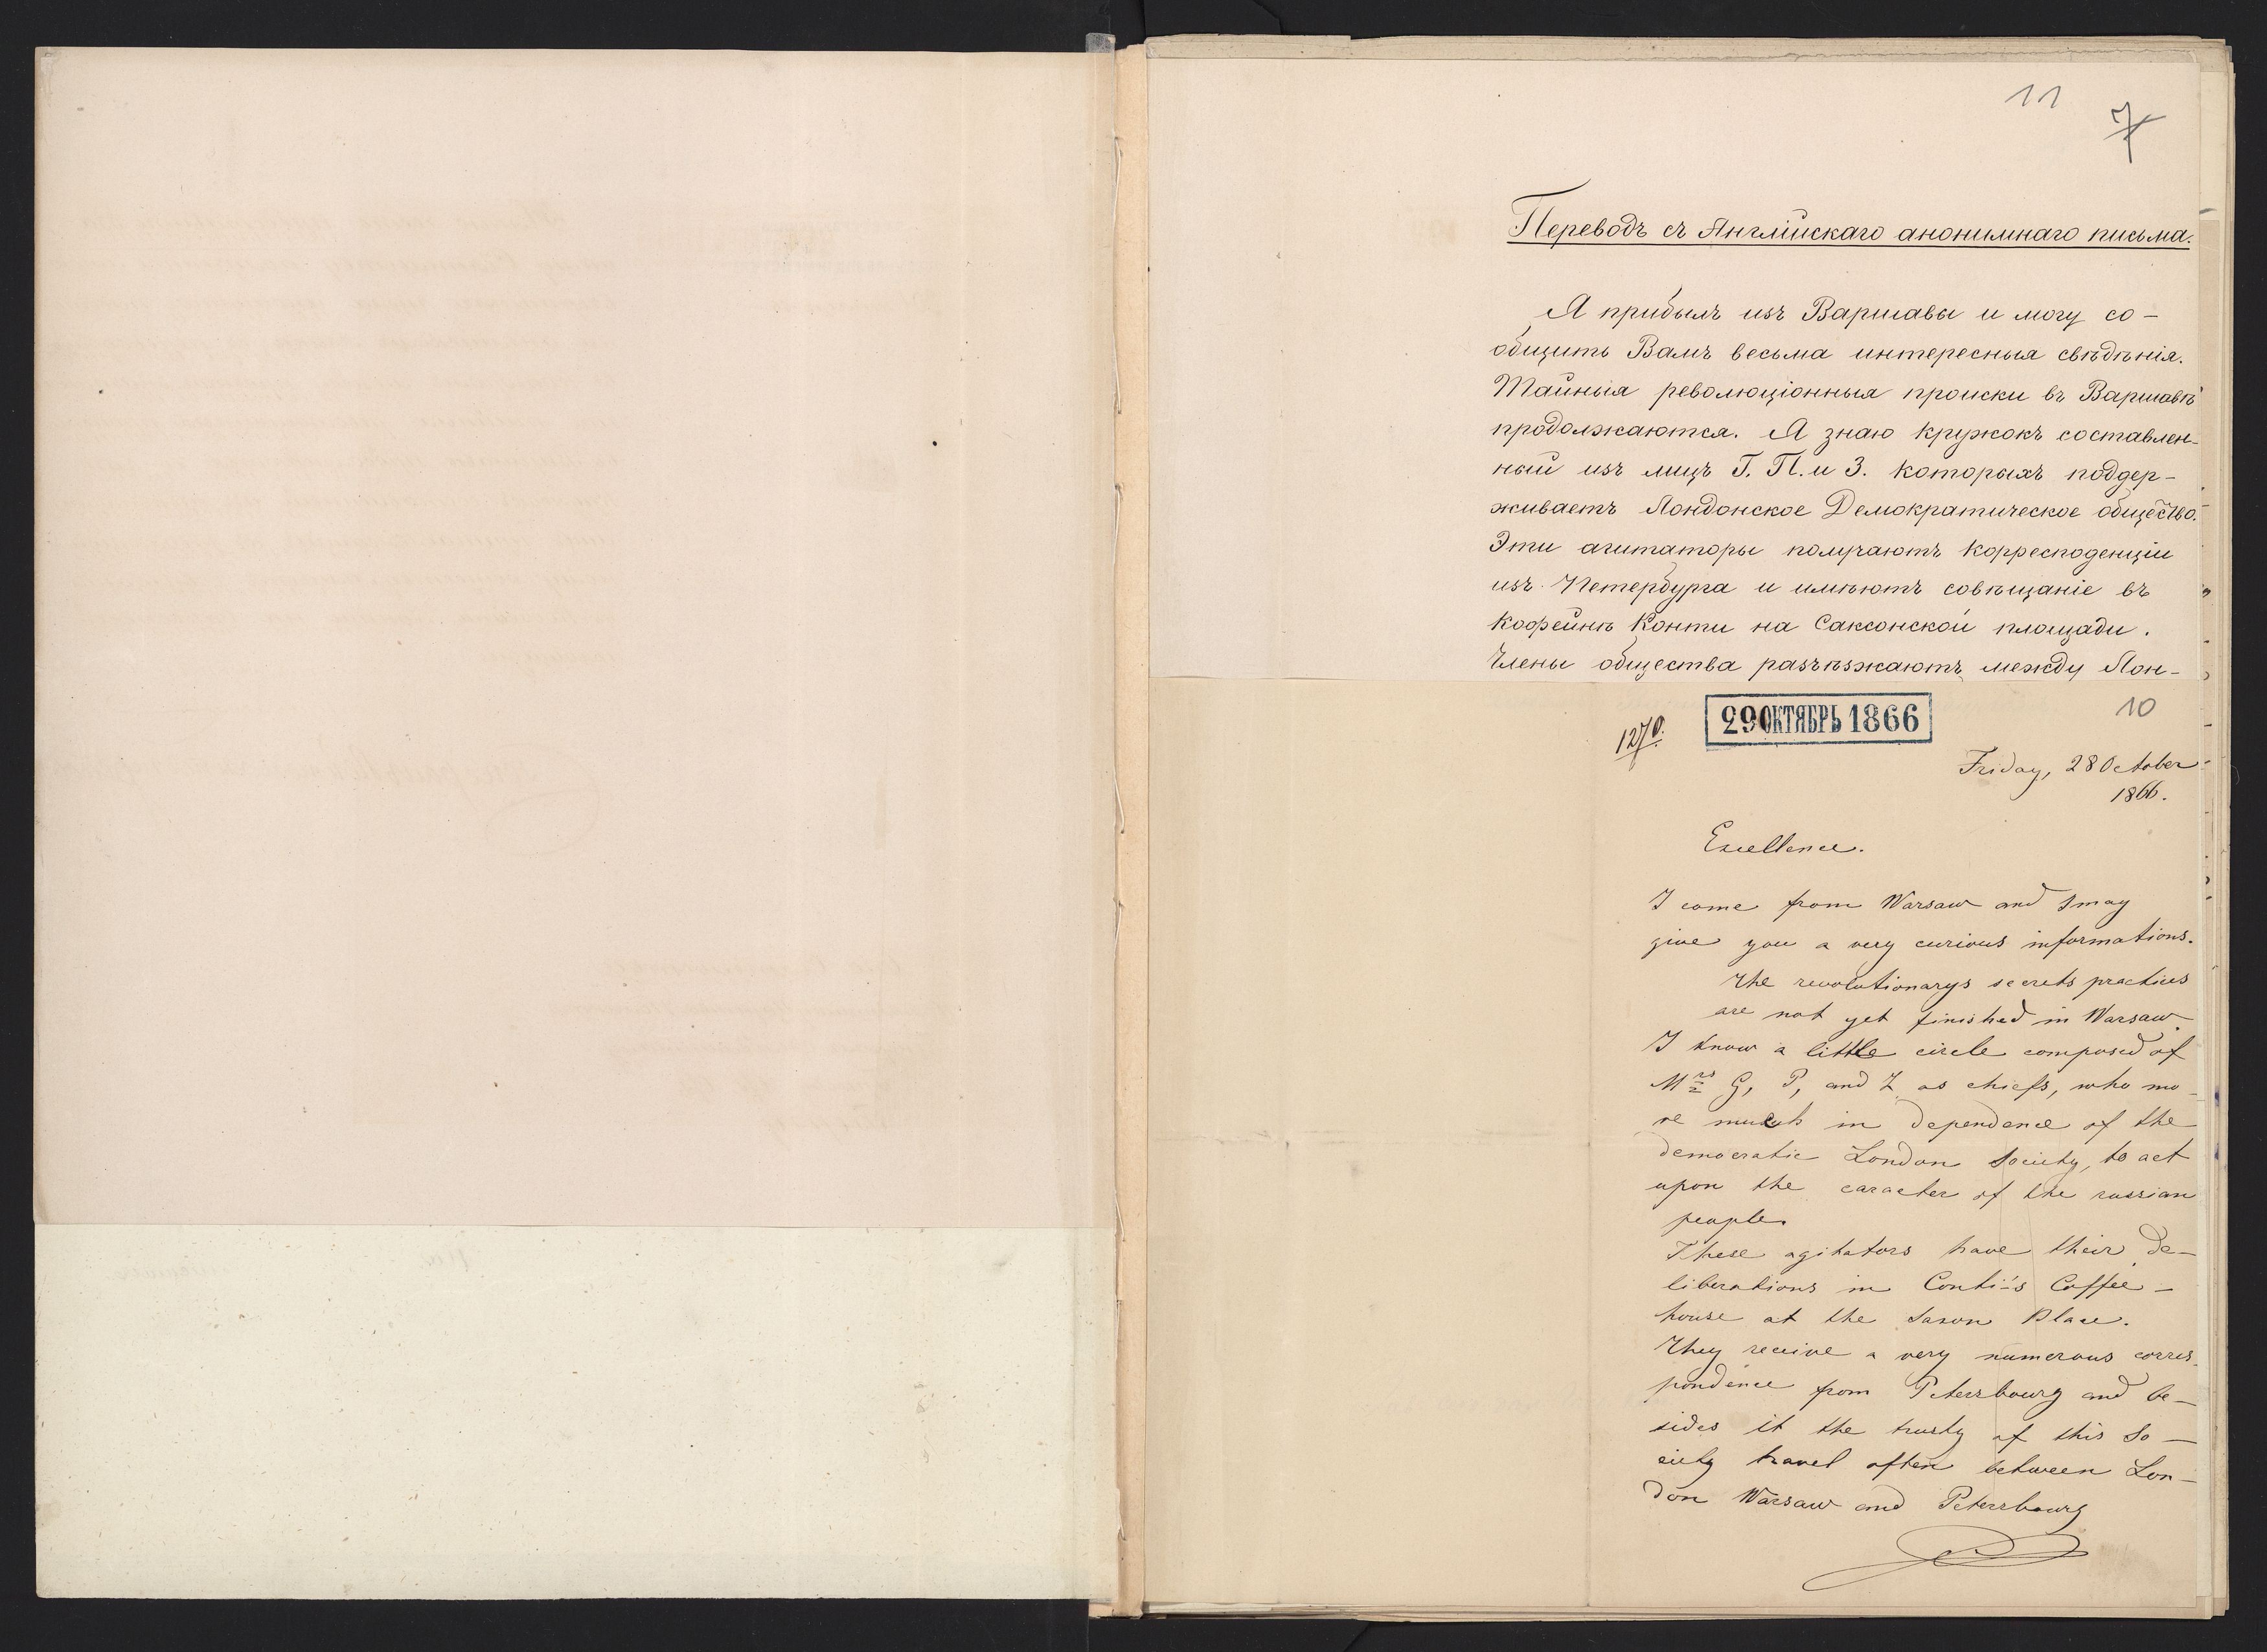 11
7
Переводъ съ Англійскаго анонимнаго письма.
Я прибылъ изъ Варшавы и могу со-
общить Вамъ весьма интересныя свѣдѣнія.
Тайныя революціонныя происки въ Варшавѣ
продолжаются. Я знаю кружокъ составлен-
ный изъ лицъ Г. П. и З. которыхъ поддер-
живаетъ Лондонское Демократическое общество.
Эти агитаторы получаютъ корресподенціи
изъ Петербурга и имѣютъ совѣщаніе въ
кофейнѣ Конти на Саксонской площади.
Члены общества разъѣзжаютъ между Лон-
10
29 ОКТЯБРЬ 1866
1270.
Friday, 28 October
1866.
Excellence.
I come from Warsaw and I may
give you a very curious informations.
The revolutionarys secrets practices
are not yet finished in Warsaw.
I know a little circle composed of
Mrs G, P, and Z as chiefs, who mo-
ve much in dependence of the
democratic London Society, to act
upon the caracter of the russian
people.
These agitators have their de-
liberations in Conti's Coffee-
house at the Saxon Place.
They receive a very numerous corres-
pondence from Petersbourg and be-
sides it the trusty of this So-
ciety travel often between Lon-
don Warsaw and Petersbourg